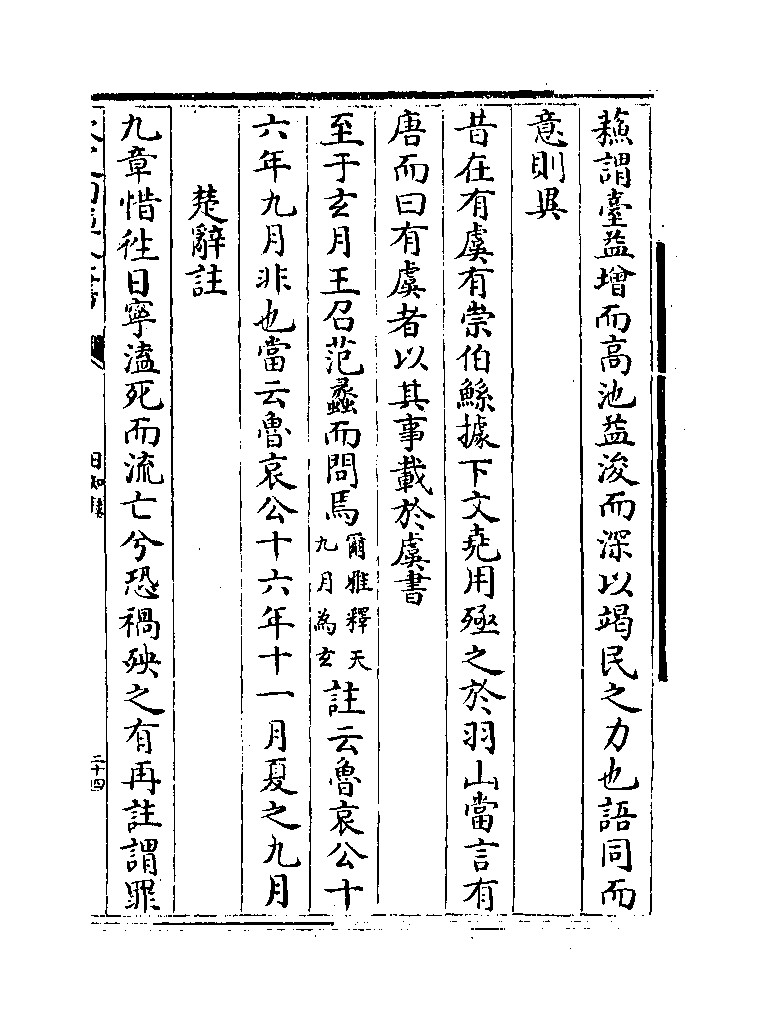 蘓謂臺益增而高池益浚而深以竭民之力也語同而
意則異
昔在有虞有崇伯鯀據下文堯用殛之於羽山當言有
唐而曰有虞者以其事載於虞書
至于玄月王召范蠡而問焉爾雅釋天九月為玄註云魯哀公十
六年九月非也當云魯哀公十六年十一月夏之九月
楚辭註
九章惜徃日寧溘死而流亡兮恐禍殃之有再註謂罪
日知錄
二十四